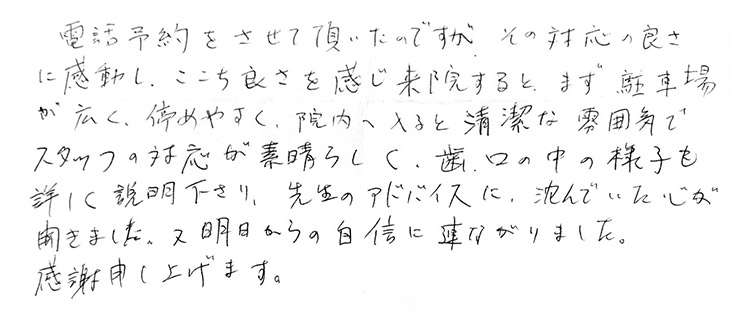 電話予約をさせて頂いたのですが、その対応の良さ
に感動し、ここち良さを感じ来院すると、まず駐車場
が広く、停めやすく、院内へ入ると清潔な雰囲気で
スタッフの対応が素晴らしく、歯、口の中の様子も
詳しく説明下さり、先生のアドバイスに、沈んでいた心が
開きました。又明日からの自信に連ながりました。
感謝申し上げます。